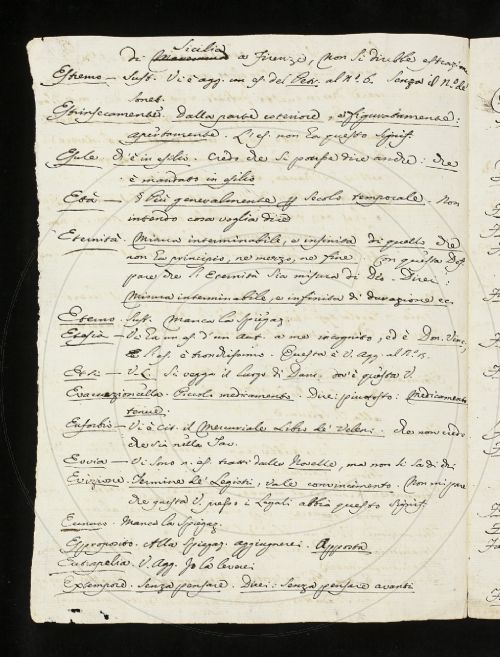 Sicilia
di a Firenze, non si direbbe estrazione
Estremo — Sust. Vi è agg. con es. del Petr. al N.º 6. Senza il N.º de'
Sonet.
Estrinsecamente. Dalla parte esteriore, e figuratamente:
apertamente. L'es. non ha questo signif.
Esule. Ch'è in esilio. Credo che si potesse dire anche: che
è mandato in esilio
Età — § Più generalmente Secolo temporale. Non
intendo cosa voglia dire
Eternità. Misura interminabile, e infinita di quello, che
non ha principio, nè mezzo, nè fine. Con questa
pare che l'Eternità sia misura di Dio. Direi:
Misura interminabile, e infinita di durazione ec.
Eterno. Sust. Manca la spiegaz.
Etesia — Vi ha un es. d'un Aut. a me incognito, ed è
L'es. è Questo è V. Agg. al N.º
V. L. Si vegga il luogo di Dant. dov'è questa V.
Evacuazioncella. Piccolo medicamento. Direi piuttosto: Medicamento
tenue.
Euforbio — Vi è cit. il Mercuriale Libro de' Veleni. che non credo
che sia nella Tav.
Evvia — Vi sono n. es. tratti dalle Novelle, ma non si sa di chi
Evizione. Termine de' Legisti, vale convincimento. Non mi pare
che questa V. presso i Legali abbia questo signif.
Eunuco. Manca la spiegaz.
Exproposito. Alla spiegaz. aggiugnerei. Apposta
Eutrapelia. V. Agg. Io la leverei
Extempore. Senza pensare. Direi: Senza pensare avanti